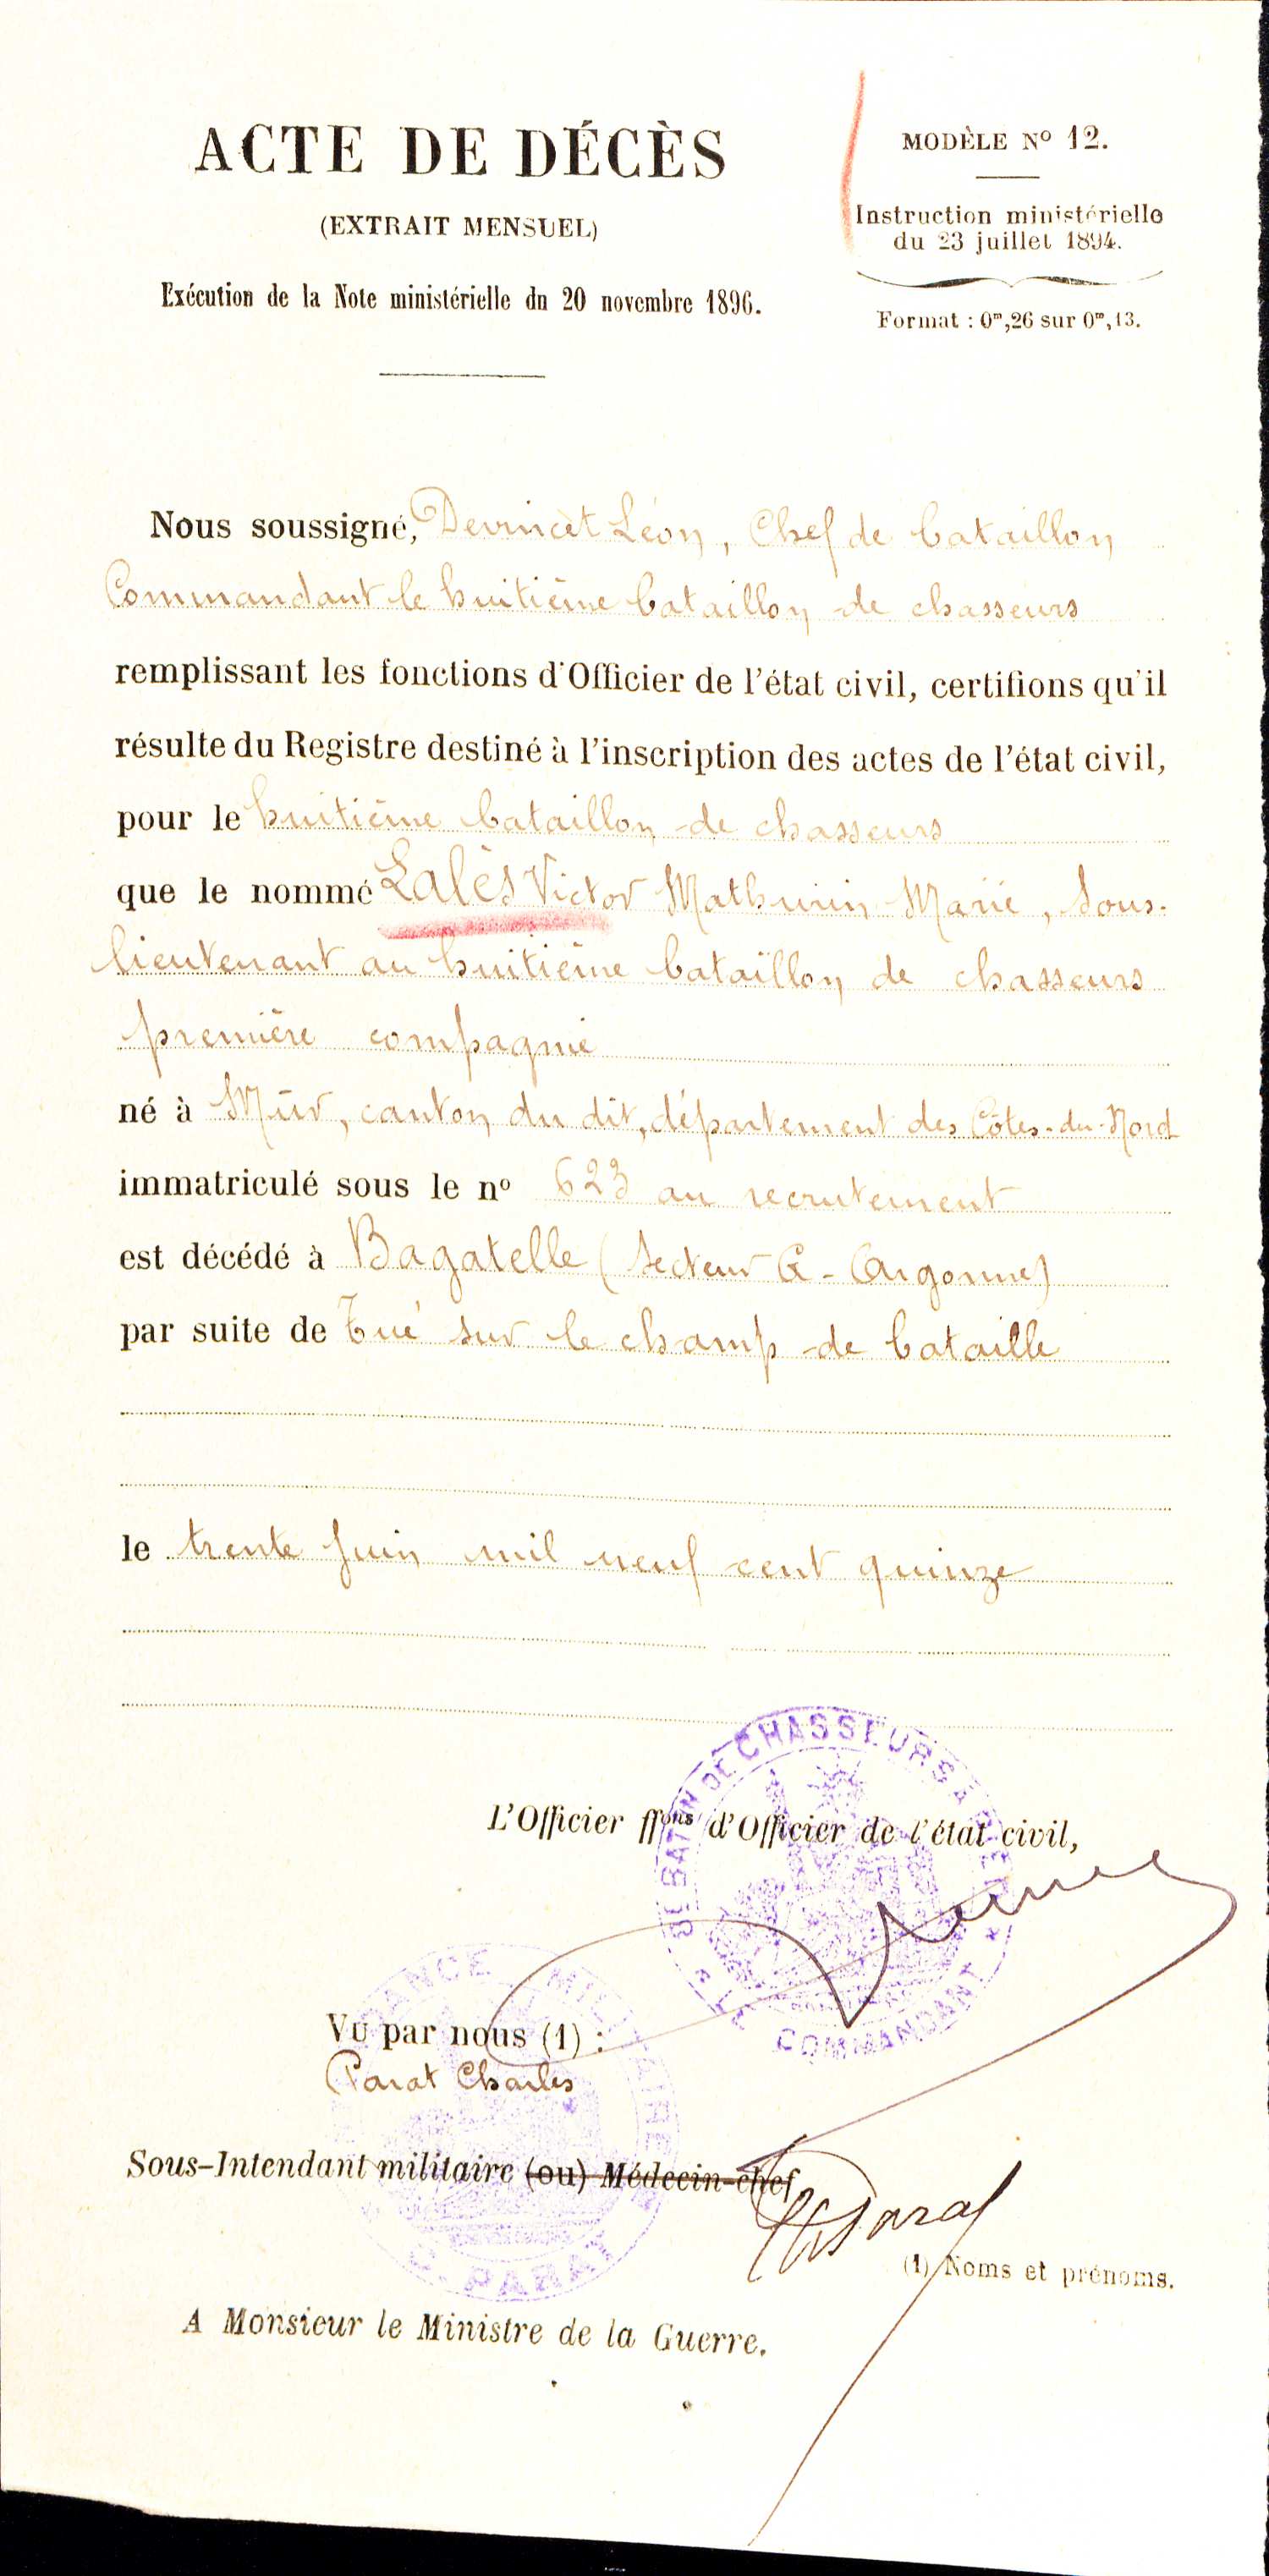 ACTE DE DÉCÈS
(EXTRAIT MENSUEL)
Exécution de la Note ministérielle du 20 novembre 1896.
MODÈLE Nº 12.
Instruction ministérielle
du 23 juillet 1894.
Format : 0ᵐ,26 sur 0ᵐ,13.
Nous soussigné, Devincet Léon, Chef de bataillon
Commandant le huitième bataillon de chasseurs
remplissant les fonctions d'Officier de l'état civil, certifions qu'il
résulte du Registre destiné à l'inscription des actes de l'état civil,
pour le huitième bataillon de chasseurs
que le nommé Lalès Victor Mathurin Marie, Sous-
lieutenant au huitième bataillon de chasseurs
première compagnie
né à Mûr, canton du dit, département des Côtes-du-Nord
immatriculé sous le nº 623 au recrutement
est décédé à Bagatelle (secteur G - Argonne)
par suite de Tué sur le champ de bataille
le trente Juin mil neuf cent quinze
8E BATON DE CHASSEURS A PIED
LE COMMANDANT
L'Officier ffᵒⁿˢ d'Officier de l'état civil,
Vu par nous (1) :
Parat Charles
MILITAIRE
C. PARAT
Sous-Intendant militaire (ou) Médecin-chef
ChParat
(1) Noms et prénoms.
A Monsieur le Ministre de la Guerre.